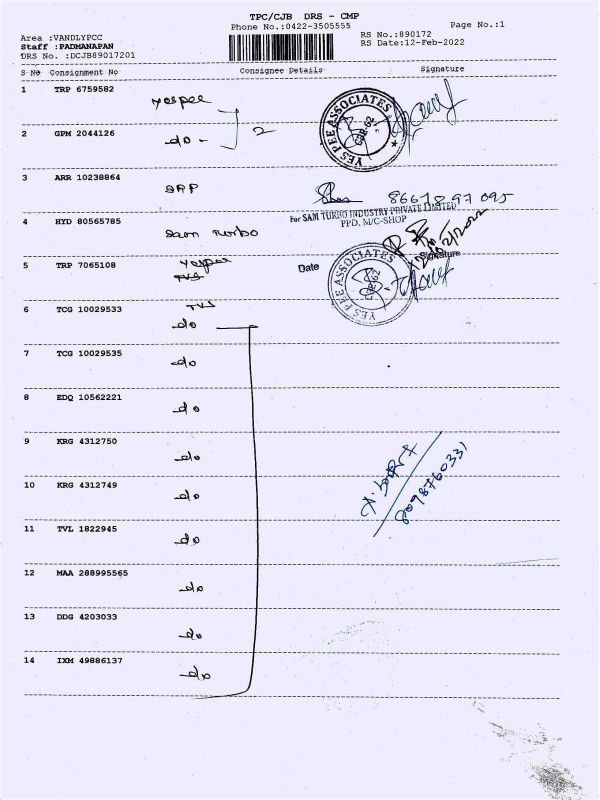 TPC/CJB DRS - CMP
Phone No.:0422-3505555
Page No.:1
Area :VANDLYPCC
RS No.:890172
Staff :PADMANAPAN
RS Date:12-Feb-2022
DRS No. :DCJB89017201
S No Consignment No Consignee Details Signature
1 TRP 6759582 yespee
YES PEE ASSOCIATES
CJB-62
2 GPM 2044126 do - 2
3 ARR 10238864 SRP
86678 97 095
For SAM TURBO INDUSTRY PRIVATE LIMITED
PPD, M/C-SHOP
4 HYD 80565785 Sam Turbo
12/02/2022
5 TRP 7065108 yespee
TVS
Date Signature
YES PEE ASSOCIATES
CJB-62
6 TCG 10029533 TVS
do
7 TCG 10029535 do
8 EDQ 10562221 do
9 KRG 4312750 do
8098760331
10 KRG 4312749 do
11 TVL 1822945 do
12 MAA 288995565 do
13 DDG 4203033 do
14 IXM 49886137 do